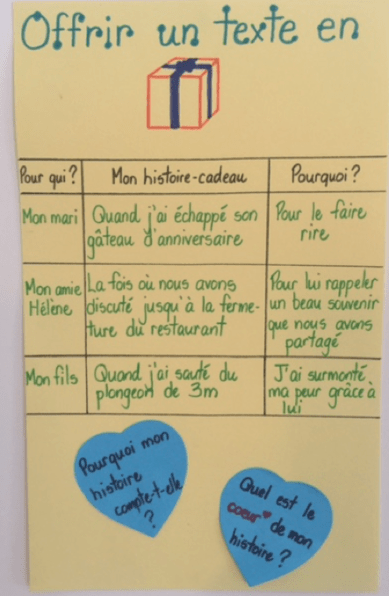 Offrir un texte en
Pour qui?
Mon histoire-cadeau
Pourquoi?
Mon mari
Quand j'ai échappé son
gâteau d'anniversaire
Pour le faire
rire
Mon amie
Hélène
La fois où nous avons
discuté jusqu'à la ferme-
ture du restaurant
Pour lui rappeler
un beau souvenir
que nous avons
partagé
Mon fils
Quand j'ai sauté du
plongeon de 3m
J'ai surmonté
ma peur grâce à
lui
Pourquoi mon
histoire
compte-t-elle
?
Quel est le
coeur de mon
histoire?